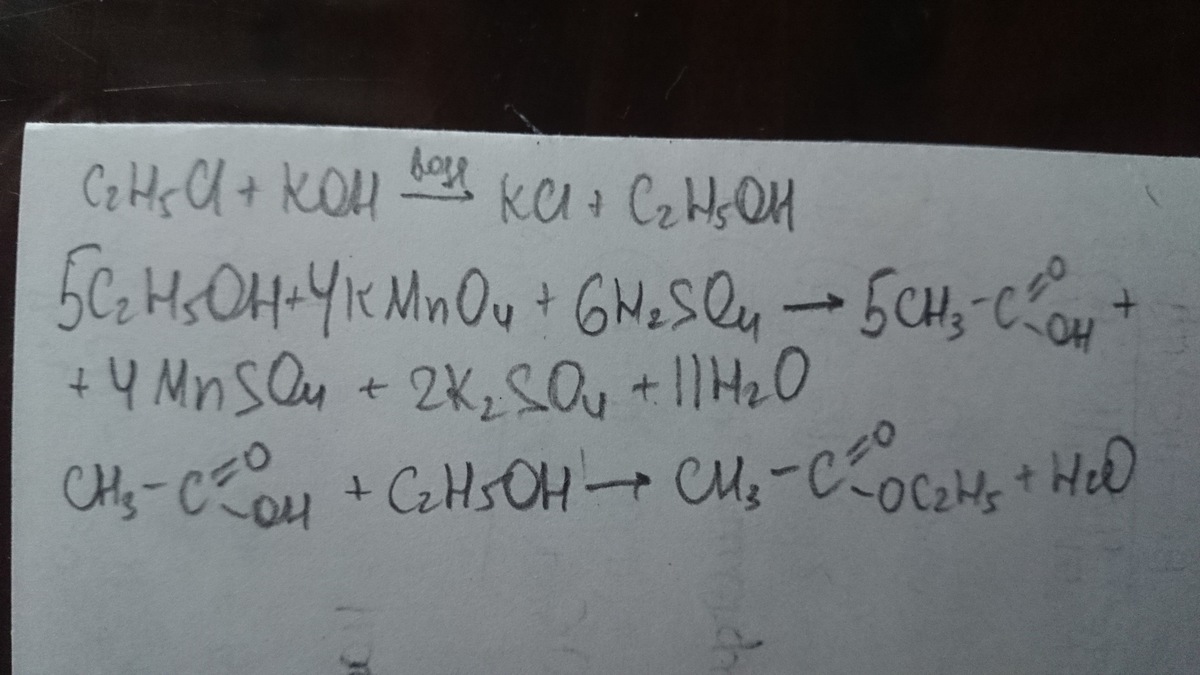 C₂H₅Cl + KOH —водн→ KCl + C₂H₅OH
5C₂H₅OH + 4KMnO₄ + 6H₂SO₄ → 5CH₃-C(=O)-OH +
+ 4MnSO₄ + 2K₂SO₄ + 11H₂O
CH₃-C(=O)-OH + C₂H₅OH → CH₃-C(=O)-OC₂H₅ + H₂O